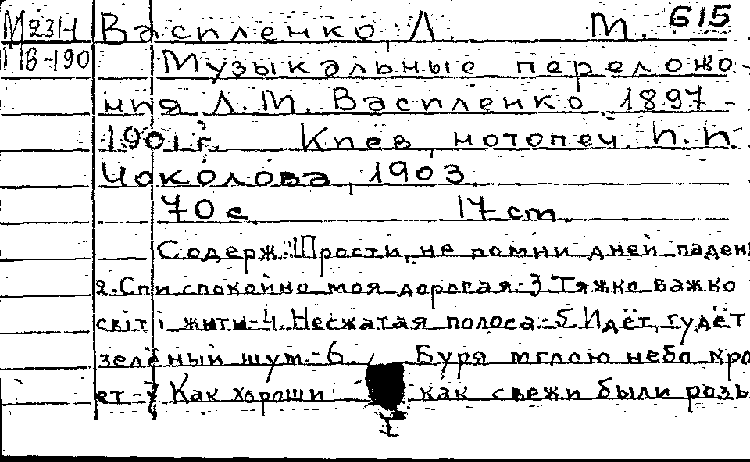 М231-1 Василенко, Л. М. 615
ПВ-190 Музыкальные переложе-
ния Л.М. Василенко 1897-
1901 г. Киев, нотопеч. И.И.
Чоколова, 1903.
70 с. 17 cm.
Содерж.: 1. Прости, не помни дней паден
2. Спи спокойно моя дорогая.-3. Тяжко важко
світі жити-4. Несжатая полоса.-5. Идёт, гудёт
зелёный шум.-6. Буря мглою небо кро
ет-7. Как хороши как свежи были розы
I